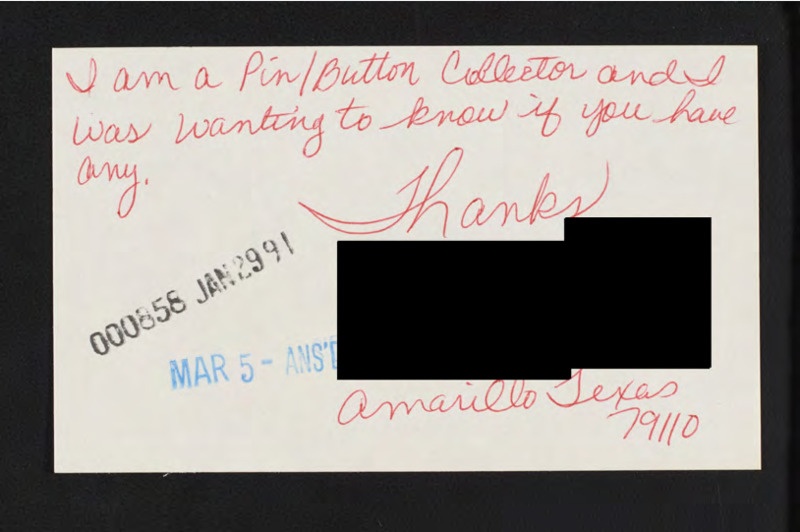 I am a Pin/Button Collector and I
was wanting to know if you have
any.
Thanks
000858 JAN 29 91
MAR 5 - ANS'D
Amarillo Texas
79110